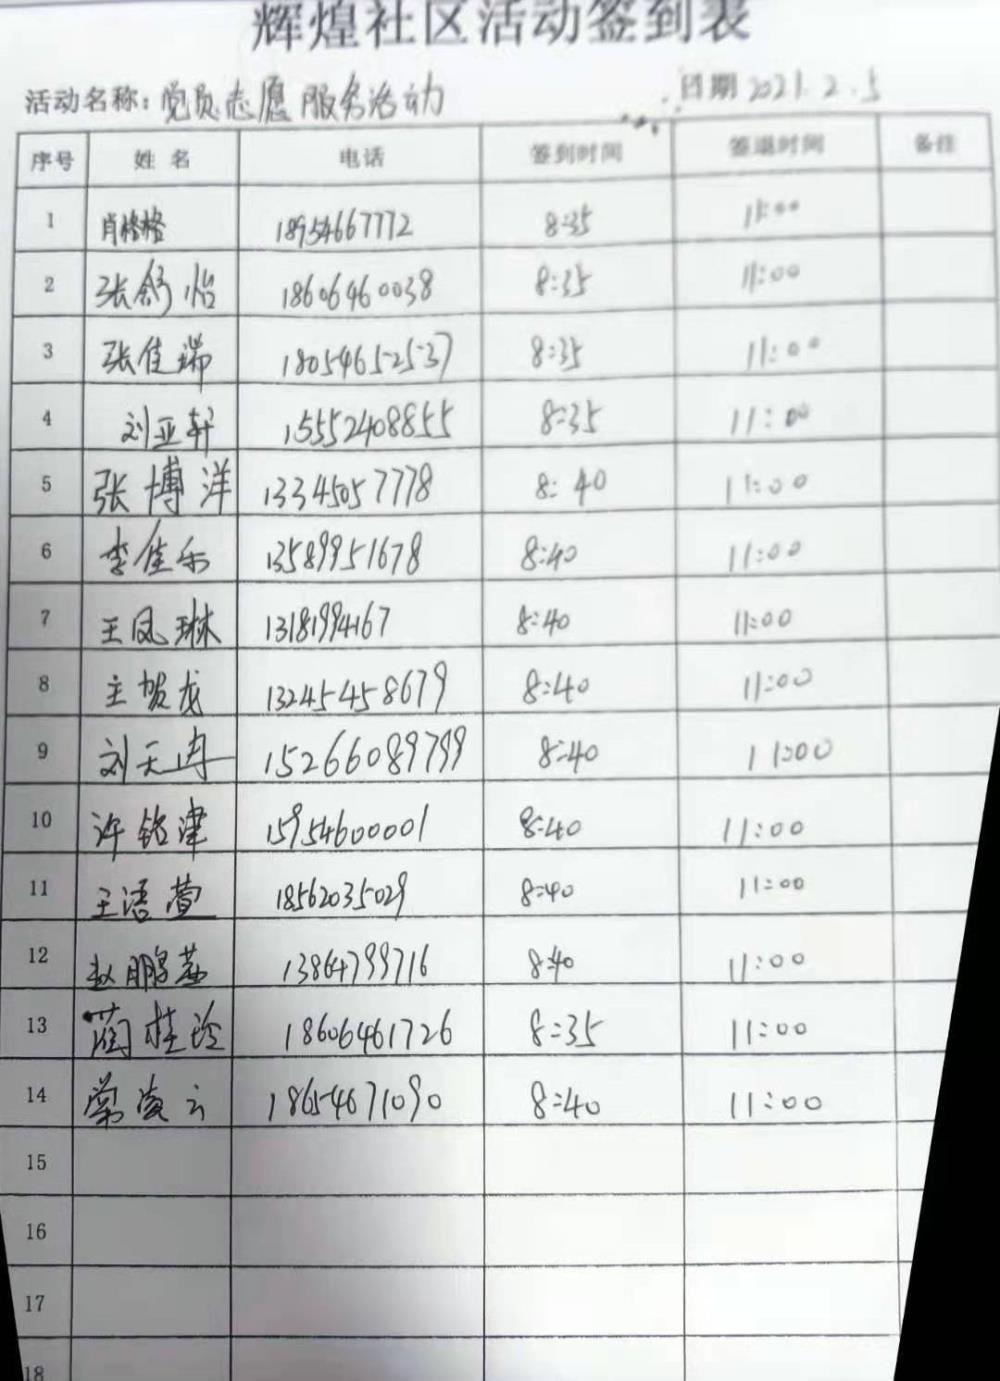 辉煌社区活动签到表
活动名称：党员志愿服务活动 日期 2021.2.5
序号 姓名 电话 签到时间 签退时间 备注
1 肖格格 18954667772 8:35 11:00
2 张舒怡 18606460038 8:35 11:00
3 张佳瑞 18054652537 8:35 11:00
4 刘亚轩 15552408855 8:35 11:00
5 张博洋 13345057778 8:40 11:00
6 李佳乐 13589951678 8:40 11:00
7 王凤琳 13181994167 8:40 11:00
8 王贺龙 13245458679 8:40 11:00
9 刘天冉 15266089799 8:40 11:00
10 许铭津 15954600001 8:40 11:00
11 王语萱 18562035029 8:40 11:00
12 赵鹏 13864799716 8:40 11:00
13 蔺桂玲 18606461726 8:35 11:00
14 常凌云 18654671090 8:40 11:00
15
16
17
18